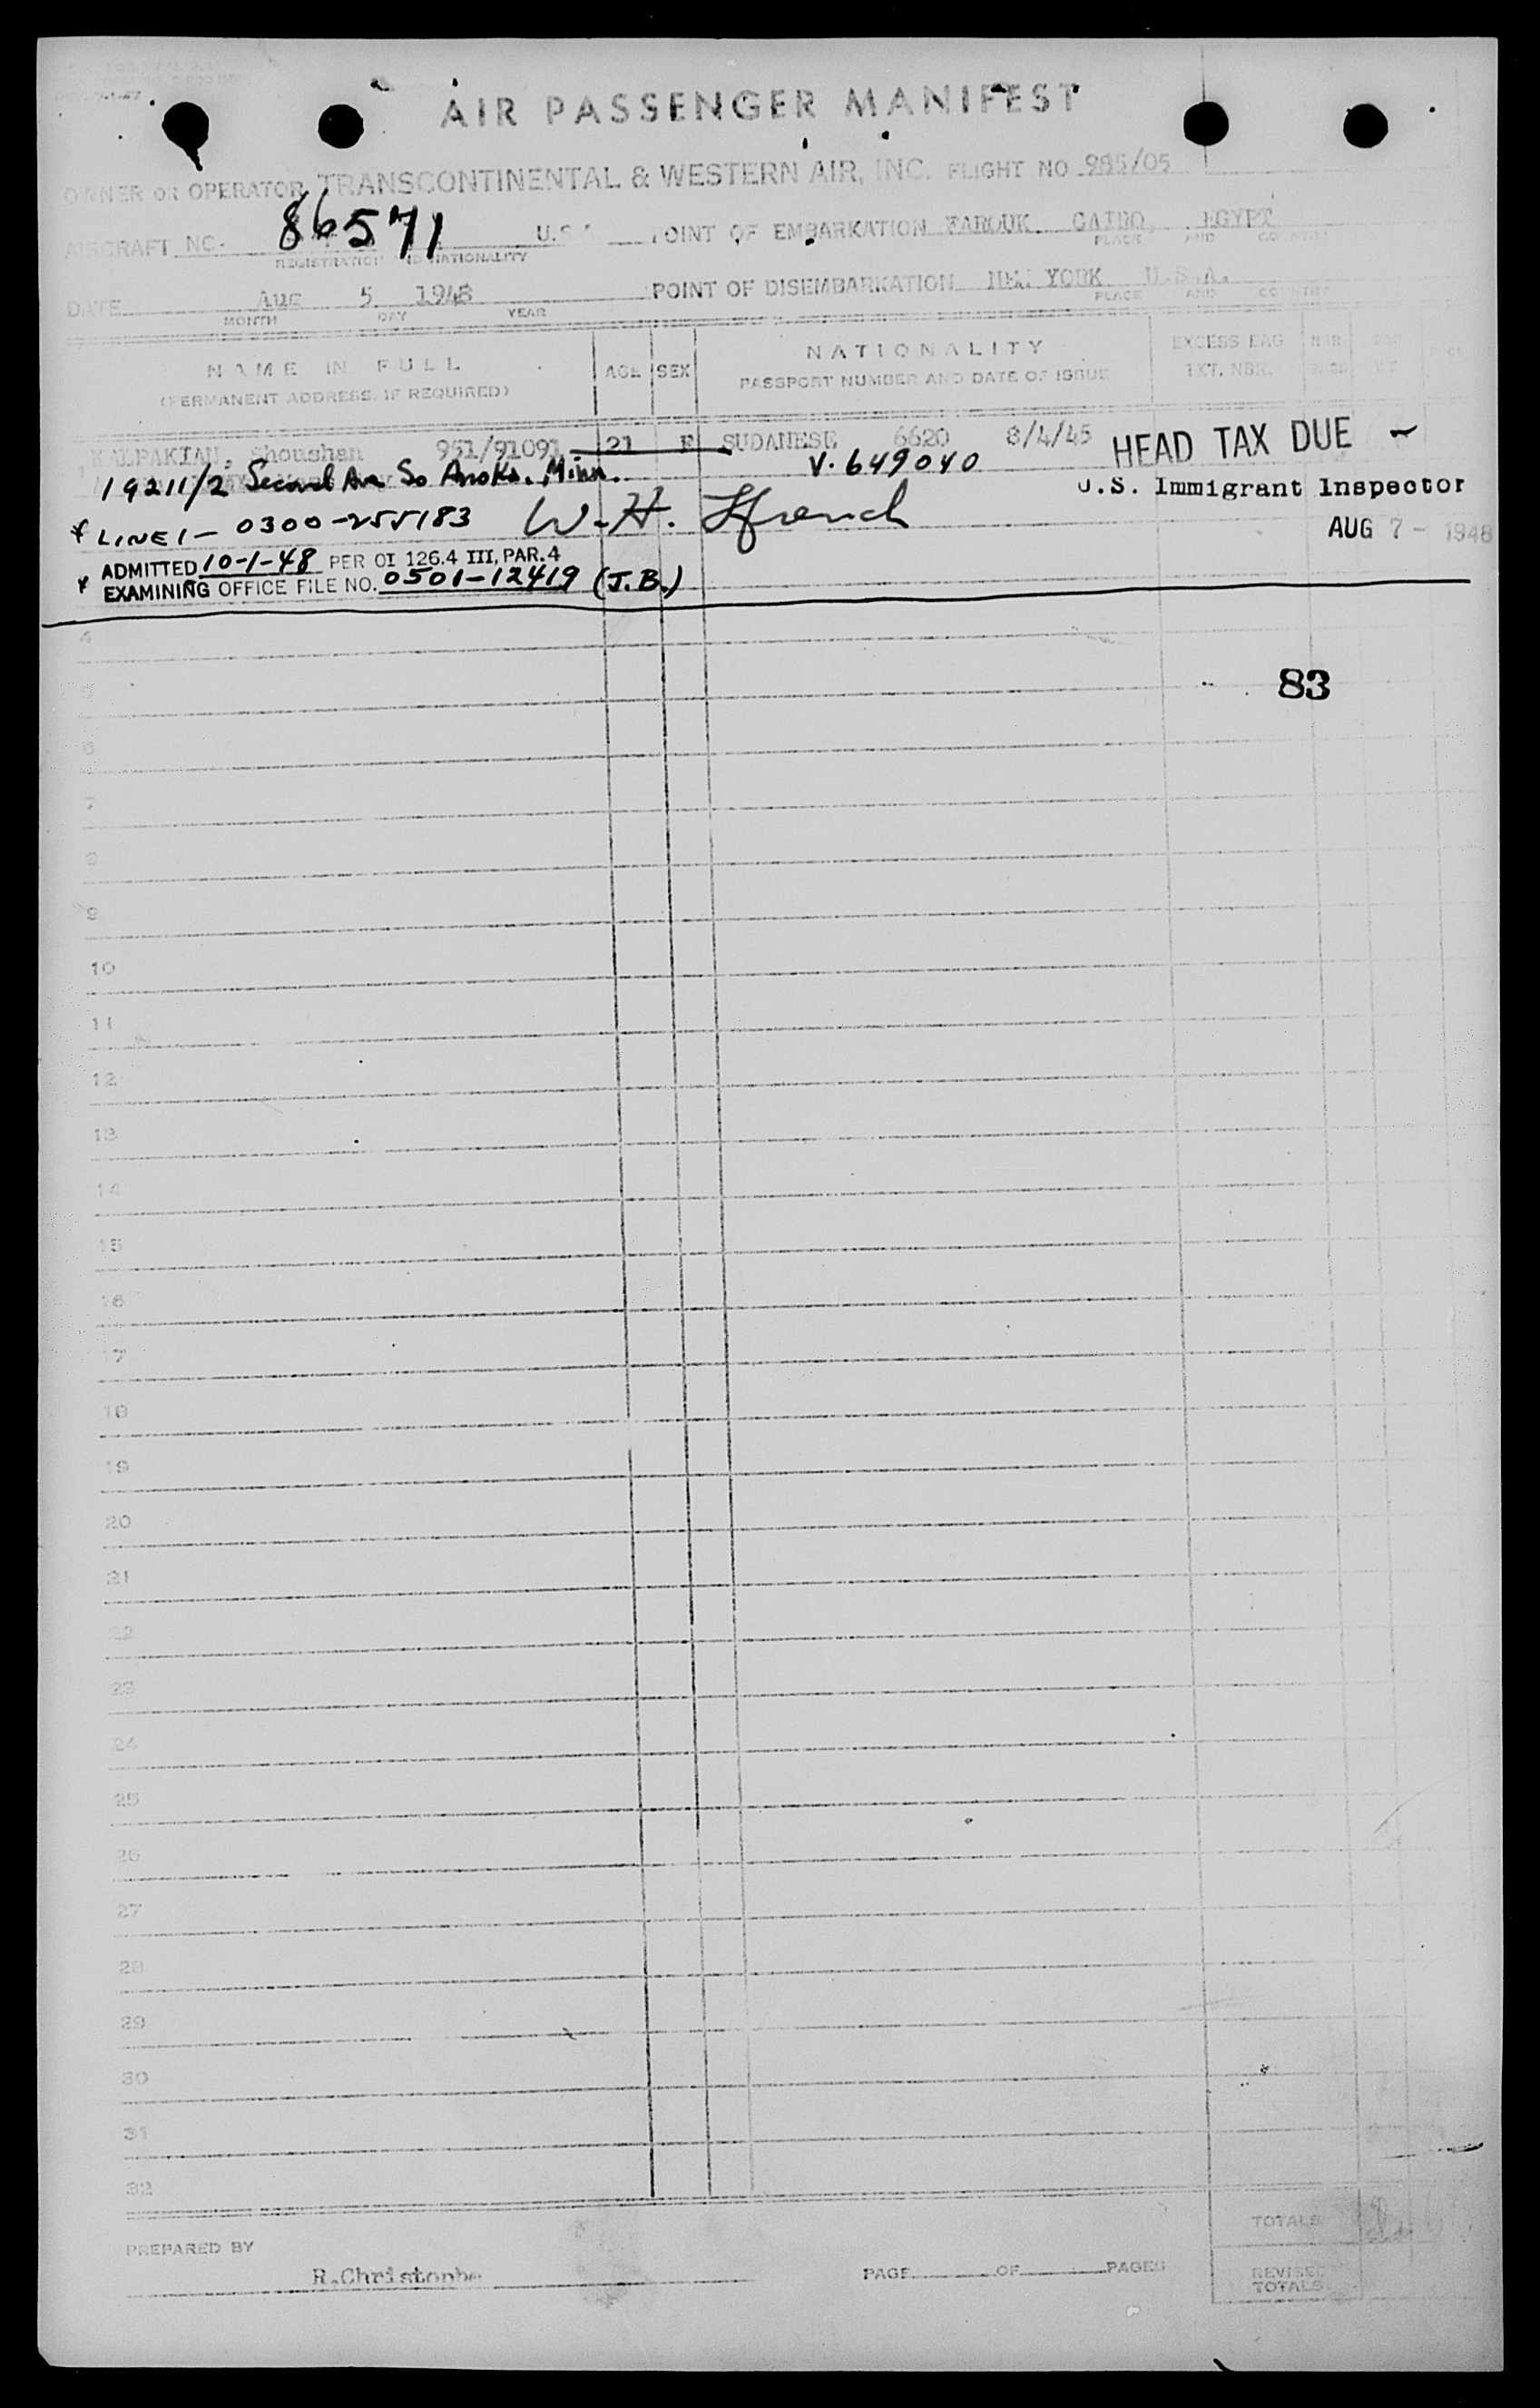 AIR PASSENGER MANIFEST
OWNER OR OPERATOR TRANSCONTINENTAL & WESTERN AIR, INC. FLIGHT NO 985/05
AIRCRAFT NC- 86571 U.S. POINT OF EMBARKATION FAROUK CAIRO, EGYPT
REGISTRATION AND NATIONALITY PLACE AND COUNTRY
DATE Aug 5 1948 POINT OF DISEMBARKATION NEW YORK U.S.A.
MONTH DAY YEAR PLACE AND COUNTRY
NAME IN FULL AGE SEX NATIONALITY EXCESS BAG
(PERMANENT ADDRESS, IF REQUIRED) PASSPORT NUMBER AND DATE OF ISSUE TKT. NBR.
KALPAKIAN, Shoushan 951/91091 21 F SUDANESE 6620 8/4/45 HEAD TAX DUE –
19211/2 Second Ave So Anoka. Minn. V. 649040
U.S. Immigrant Inspector
* LINE 1 – 0300-255183 W. H. Ffrench AUG 7 - 1948
ADMITTED 10-1-48 PER OI 126.4 III, PAR. 4
* EXAMINING OFFICE FILE NO. 0501-12419 (J.B.)
4
5 83
6
7
8
9
10
11
12
13
14
15
16
17
18
19
20
21
22
23
24
25
26
27
28
29
30
31
32
TOTALS
PREPARED BY
R.Christophe PAGE OF PAGES
REVISED
TOTALS